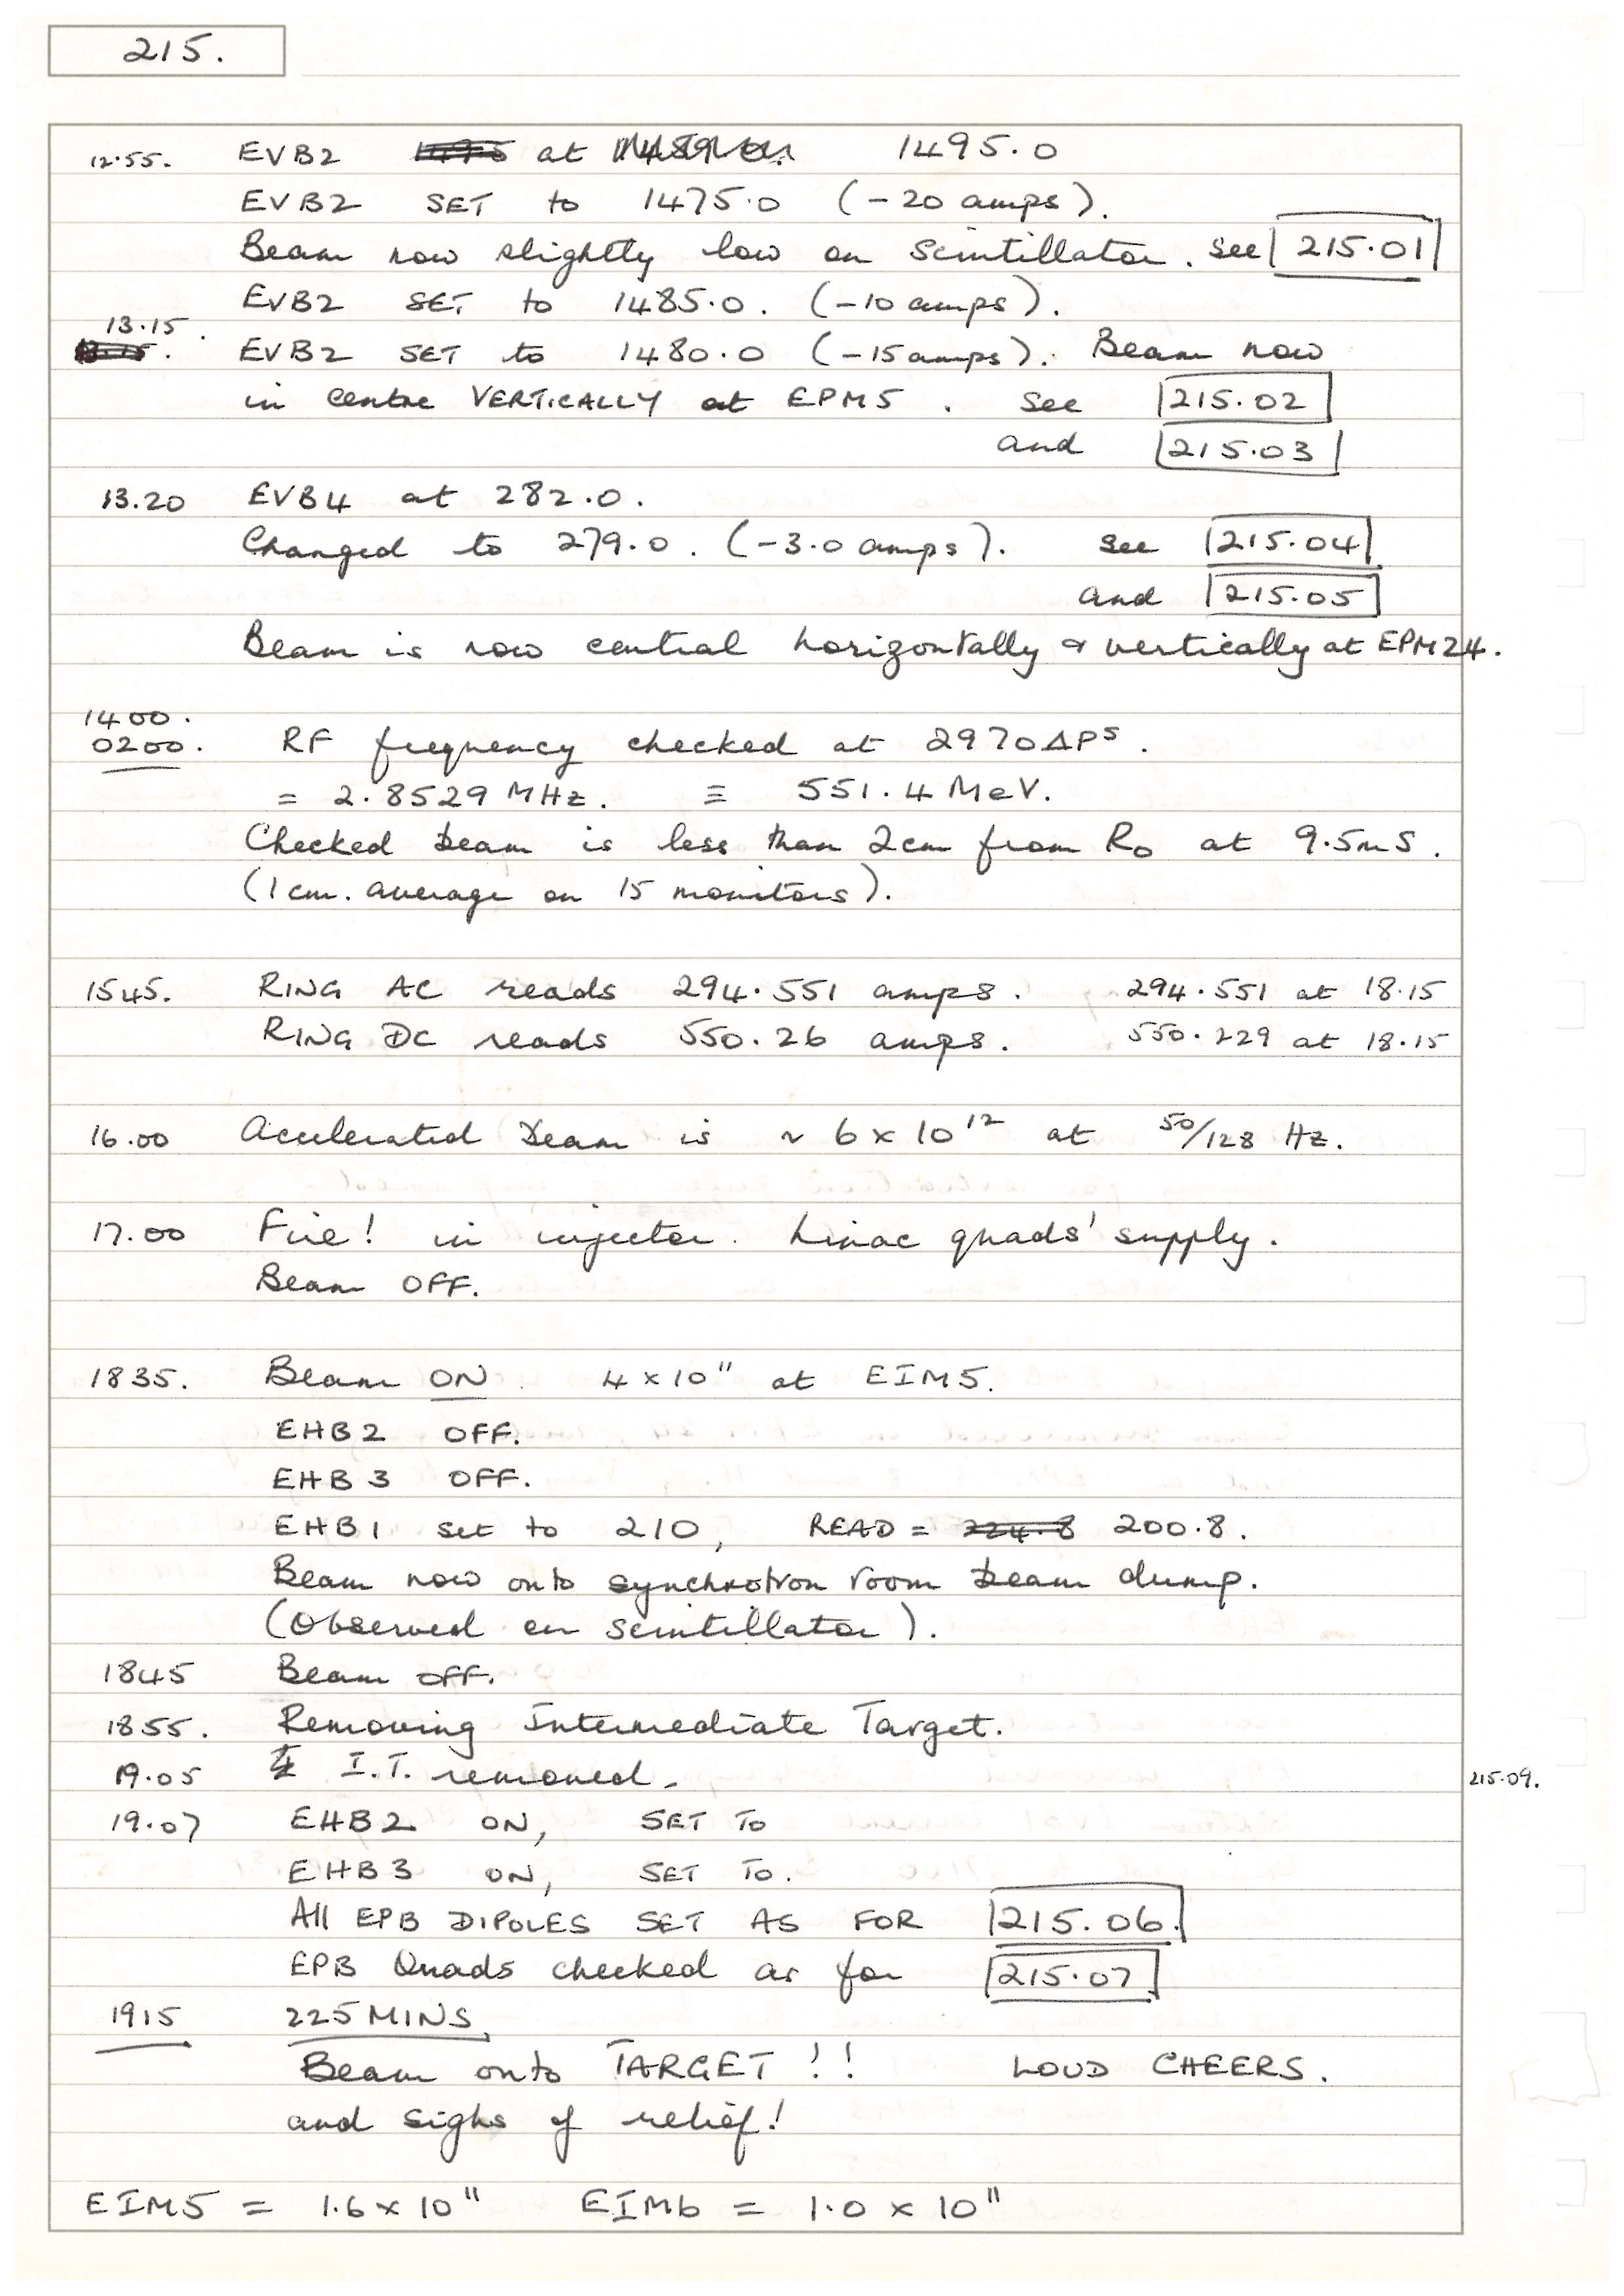 215.
12.55. EVB2 at 1495.0
EVB2 SET to 1475.0 (-20 amps).
Beam now slightly low on Scintillator. see 215.01
EVB2 SET to 1485.0. (-10 amps).
13.15. EVB2 SET to 1480.0 (-15 amps). Beam now
in centre VERTICALLY at EPM5. see 215.02
and 215.03
13.20 EVB4 at 282.0.
Changed to 279.0. (-3.0 amps). see 215.04
and 215.05
Beam is now central horizontally & vertically at EPM24.
1400.
0200. RF frequency checked at 2970 ΔPs.
= 2.8529 MHz. ≡ 551.4 MeV.
Checked beam is less than 2cm from R0 at 9.5mS.
(1cm. average on 15 monitors).
1545. RING AC reads 294.551 amps. 294.551 at 18.15
RING DC reads 550.26 amps. 550.229 at 18.15
16.00 Accelerated beam is ~ 6 x 10^12 at 50/128 Hz.
17.00 Fire! in injector. Linac quads' supply.
Beam OFF.
1835. Beam ON 4 x 10^11 at EIM5.
EHB2 OFF.
EHB3 OFF.
EHB1 set to 210, READ = 224.8 200.8.
Beam now onto synchrotron room beam dump.
(Observed on scintillator).
1845 Beam OFF.
1855. Removing Intermediate Target.
19.05 I.T. removed.
215.09.
19.07 EHB2 ON, SET TO
EHB3 ON, SET TO.
All EPB DIPOLES SET AS FOR 215.06.
EPB Quads checked as for 215.07
1915 225 MINS
Beam onto TARGET!! LOUD CHEERS.
and sighs of relief!
EIM5 = 1.6 x 10^11 EIM6 = 1.0 x 10^11